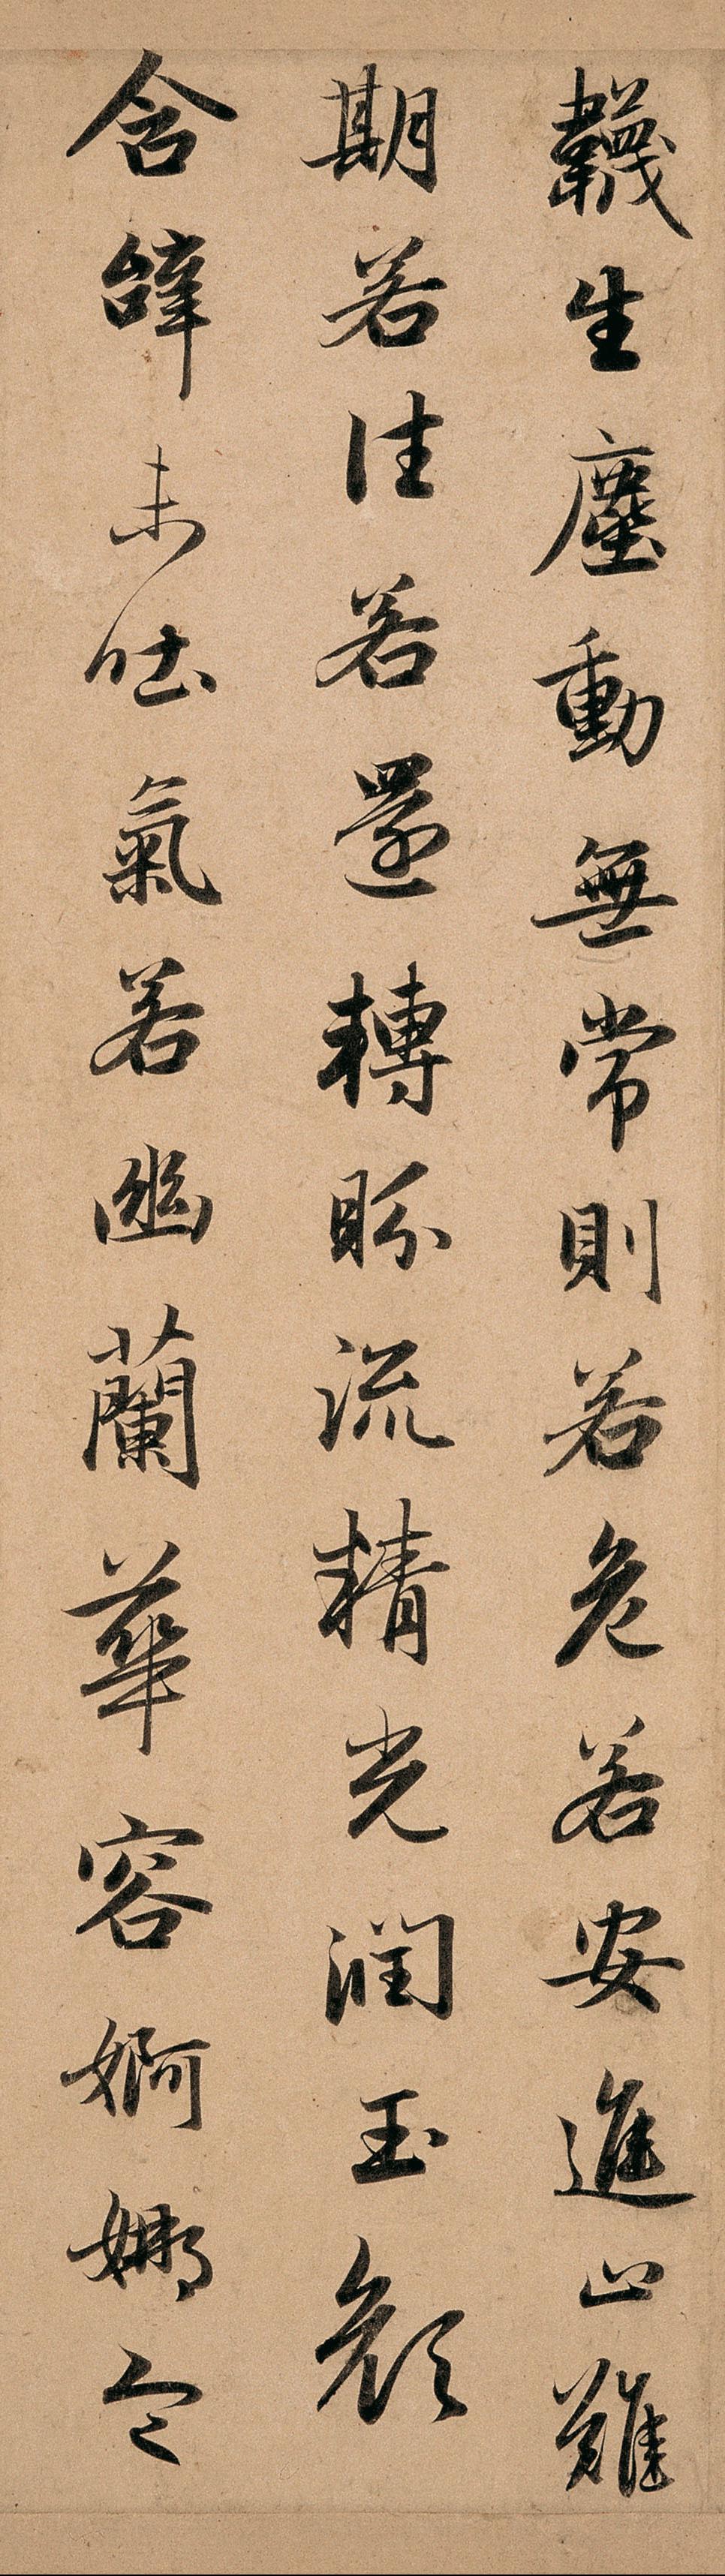 韈生塵動無常則若危若安進止難
期若往若還轉眄流精光潤玉顏
含辝未吐氣若幽蘭華容婀娜令